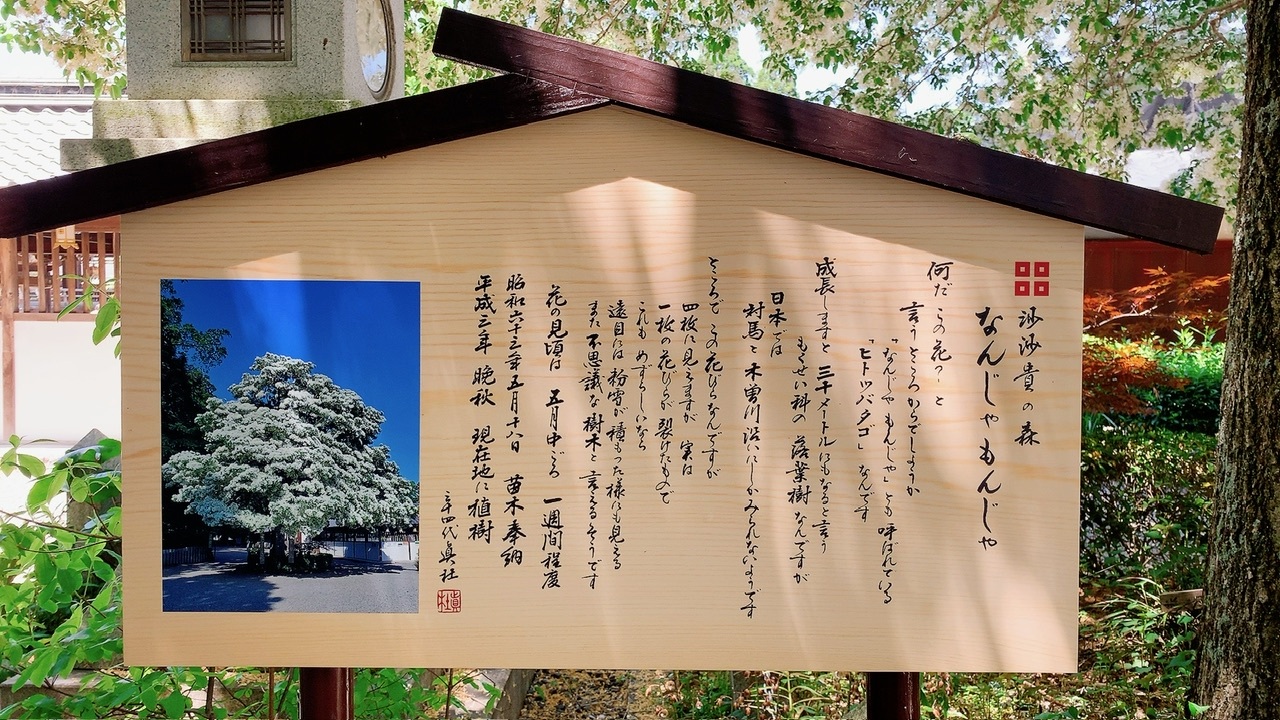 沙沙貴の森
なんじゃもんじゃ
何だ この花っ と
言うところからでしょうか
「なんじゃもんじゃ」とも 呼ばれている
「ヒトツバタゴ」 なんです
成長しますと 三十メートルにもなると言う
もくせい科の 落葉樹 なんですが
日本では
対馬と 木曽川沿いにしかみられないようです
ところで この花びらなんですが
四枚に見えますが 実は
一枚の花びらが 裂けたもので
これも めずらしいなら
遠目には 粉雪が 積もった様にも見える
また 不思議な 樹木と 言えるそうです
花の見頃は 五月中ごろ 一週間程度
昭和六十三年五月十八日 苗木奉納
平成三年 晩秋 現在地に植樹